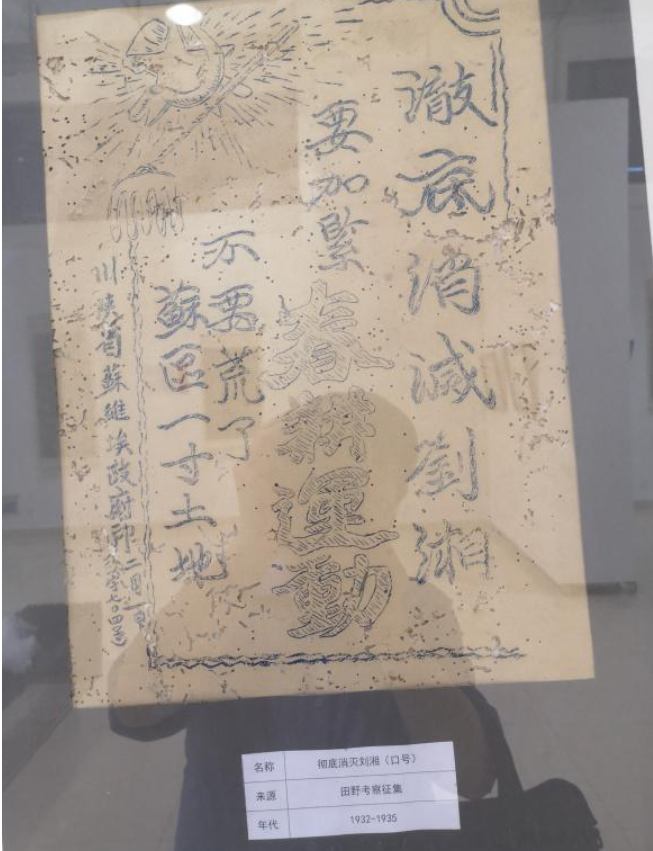 澈底消滅劉湘
要加緊
春耕運動
不要荒了
蘇區一寸土地
川陝省蘇維埃政府印 二月一日
名称 彻底消灭刘湘（口号）
来源 田野考察征集
年代 1932-1935